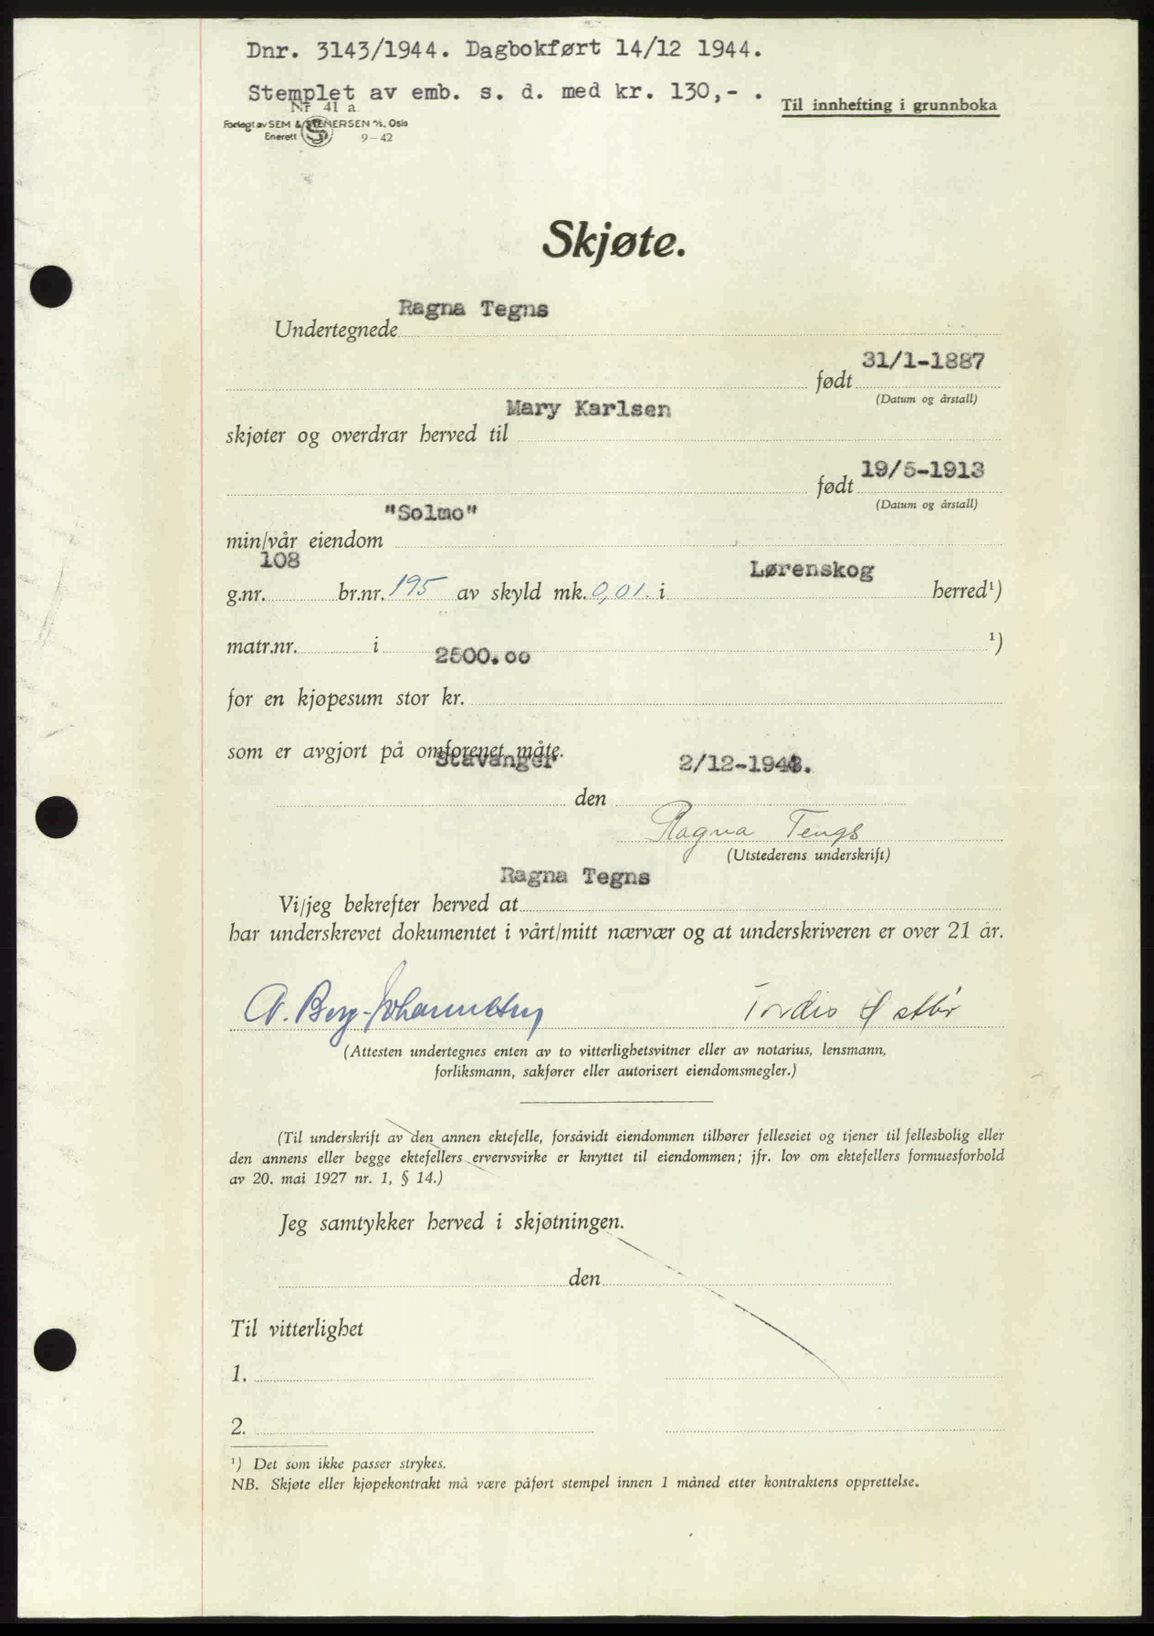 Dnr. 3143/1944. Dagbokført 14/12 1944.
Stemplet av emb. s. d. med kr. 130,- .
Til innhefting i grunnboka
Nr 41 a
Forlagt av SEM & STENERSEN A/S, Oslo
Enerett 9-42
Skjøte.
Ragna Tegns
Undertegnede
31/1-1887
født
(Datum og årstall)
Mary Karlsen
skjøter og overdrar herved til
19/5-1913
født
(Datum og årstall)
"Solmo"
min/vår eiendom
108 Lørenskog
g.nr. br.nr. 195 av skyld mk. 0,01. i herred¹)
matr.nr. i ¹)
2500.00
for en kjøpesum stor kr.
som er avgjort på omforenet måte.
Stavanger 2/12-1944.
den
Ragna Tengs
(Utstederens underskrift)
Ragna Tegns
Vi/jeg bekrefter herved at
har underskrevet dokumentet i vårt/mitt nærvær og at underskriveren er over 21 år.
A. Berg-Johannesen Tordis
(Attesten undertegnes enten av to vitterlighetsvitner eller av notarius, lensmann,
forliksmann, sakfører eller autorisert eiendomsmegler.)
(Til underskrift av den annen ektefelle, forsåvidt eiendommen tilhører felleseiet og tjener til fellesbolig eller
den annens eller begge ektefellers ervervsvirke er knyttet til eiendommen; jfr. lov om ektefellers formuesforhold
av 20. mai 1927 nr. 1, § 14.)
Jeg samtykker herved i skjøtningen.
den
Til vitterlighet
1.
2.
¹) Det som ikke passer strykes.
NB. Skjøte eller kjøpekontrakt må være påført stempel innen 1 måned etter kontraktens opprettelse.